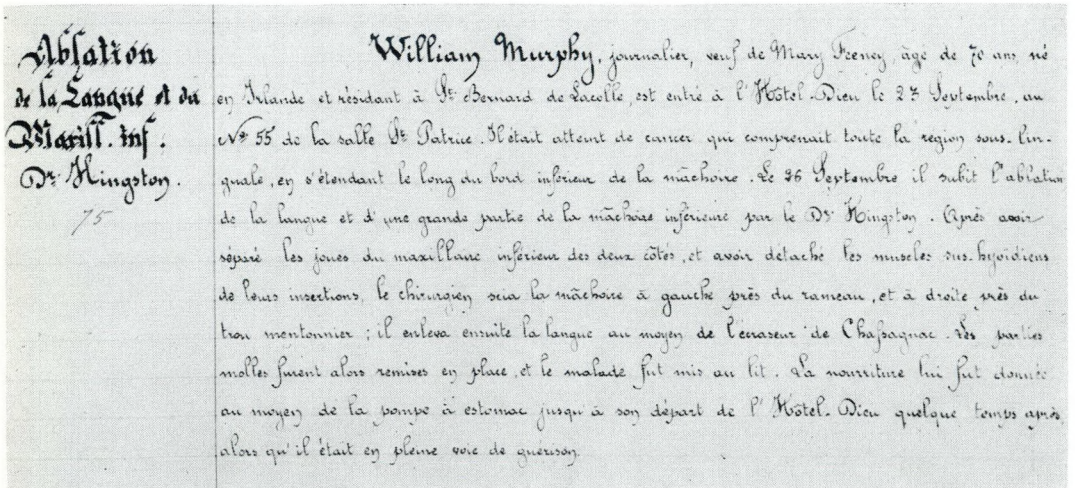 Ablation
de la Langue et du
Maxill. inf.
Dr. Hingston.
75
William Murphy, journalier, veuf de Mary Feeney, âgé de 70 ans, né
en Irlande et résidant à St. Bernard de Lacolle, est entré à l'Hôtel-Dieu le 23 Septembre, au
No. 55 de la salle St. Patrice. Il était atteint de cancer qui comprenait toute la region sous-lin-
guale, en s'étendant le long du bord inférieur de la mâchoire. Le 26 Septembre il subit l'ablation
de la langue et d'une grande partie de la mâchoire inférieure par le Dr Hingston. Après avoir
séparé les joues du maxillaire inférieur des deux côtés, et avoir détaché les muscles sus-hyoïdiens
de leurs insertions, le chirurgien scia la mâchoire à gauche près du rameau, et à droite près du
trou mentonnier ; il enleva ensuite la langue au moyen de l'écraseur de Chassagnac. Les parties
molles furent alors remises en place, et le malade fut mis au lit. La nourriture lui fut donnée
au moyen de la pompe à estomac jusqu'à son départ de l'Hôtel-Dieu quelque temps après
alors qu'il était en pleine voie de guérison.